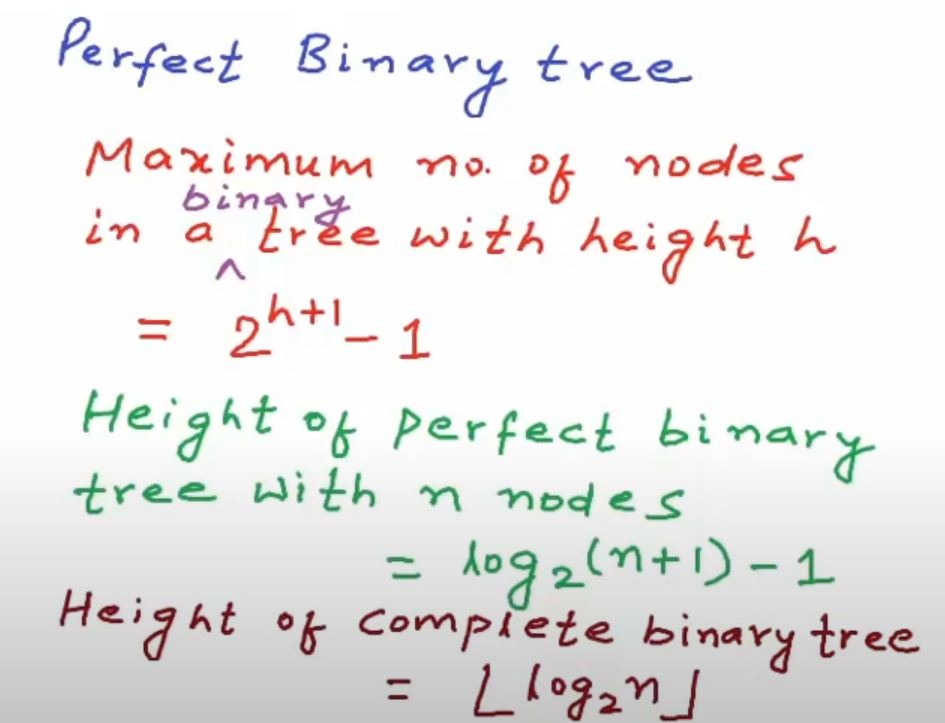 Perfect Binary tree
Maximum no. of nodes
binary
in a ^ tree with height h
= 2^{h+1} - 1
Height of perfect binary
tree with n nodes
= log₂(n+1) - 1
Height of complete binary tree
= ⌊log₂n⌋